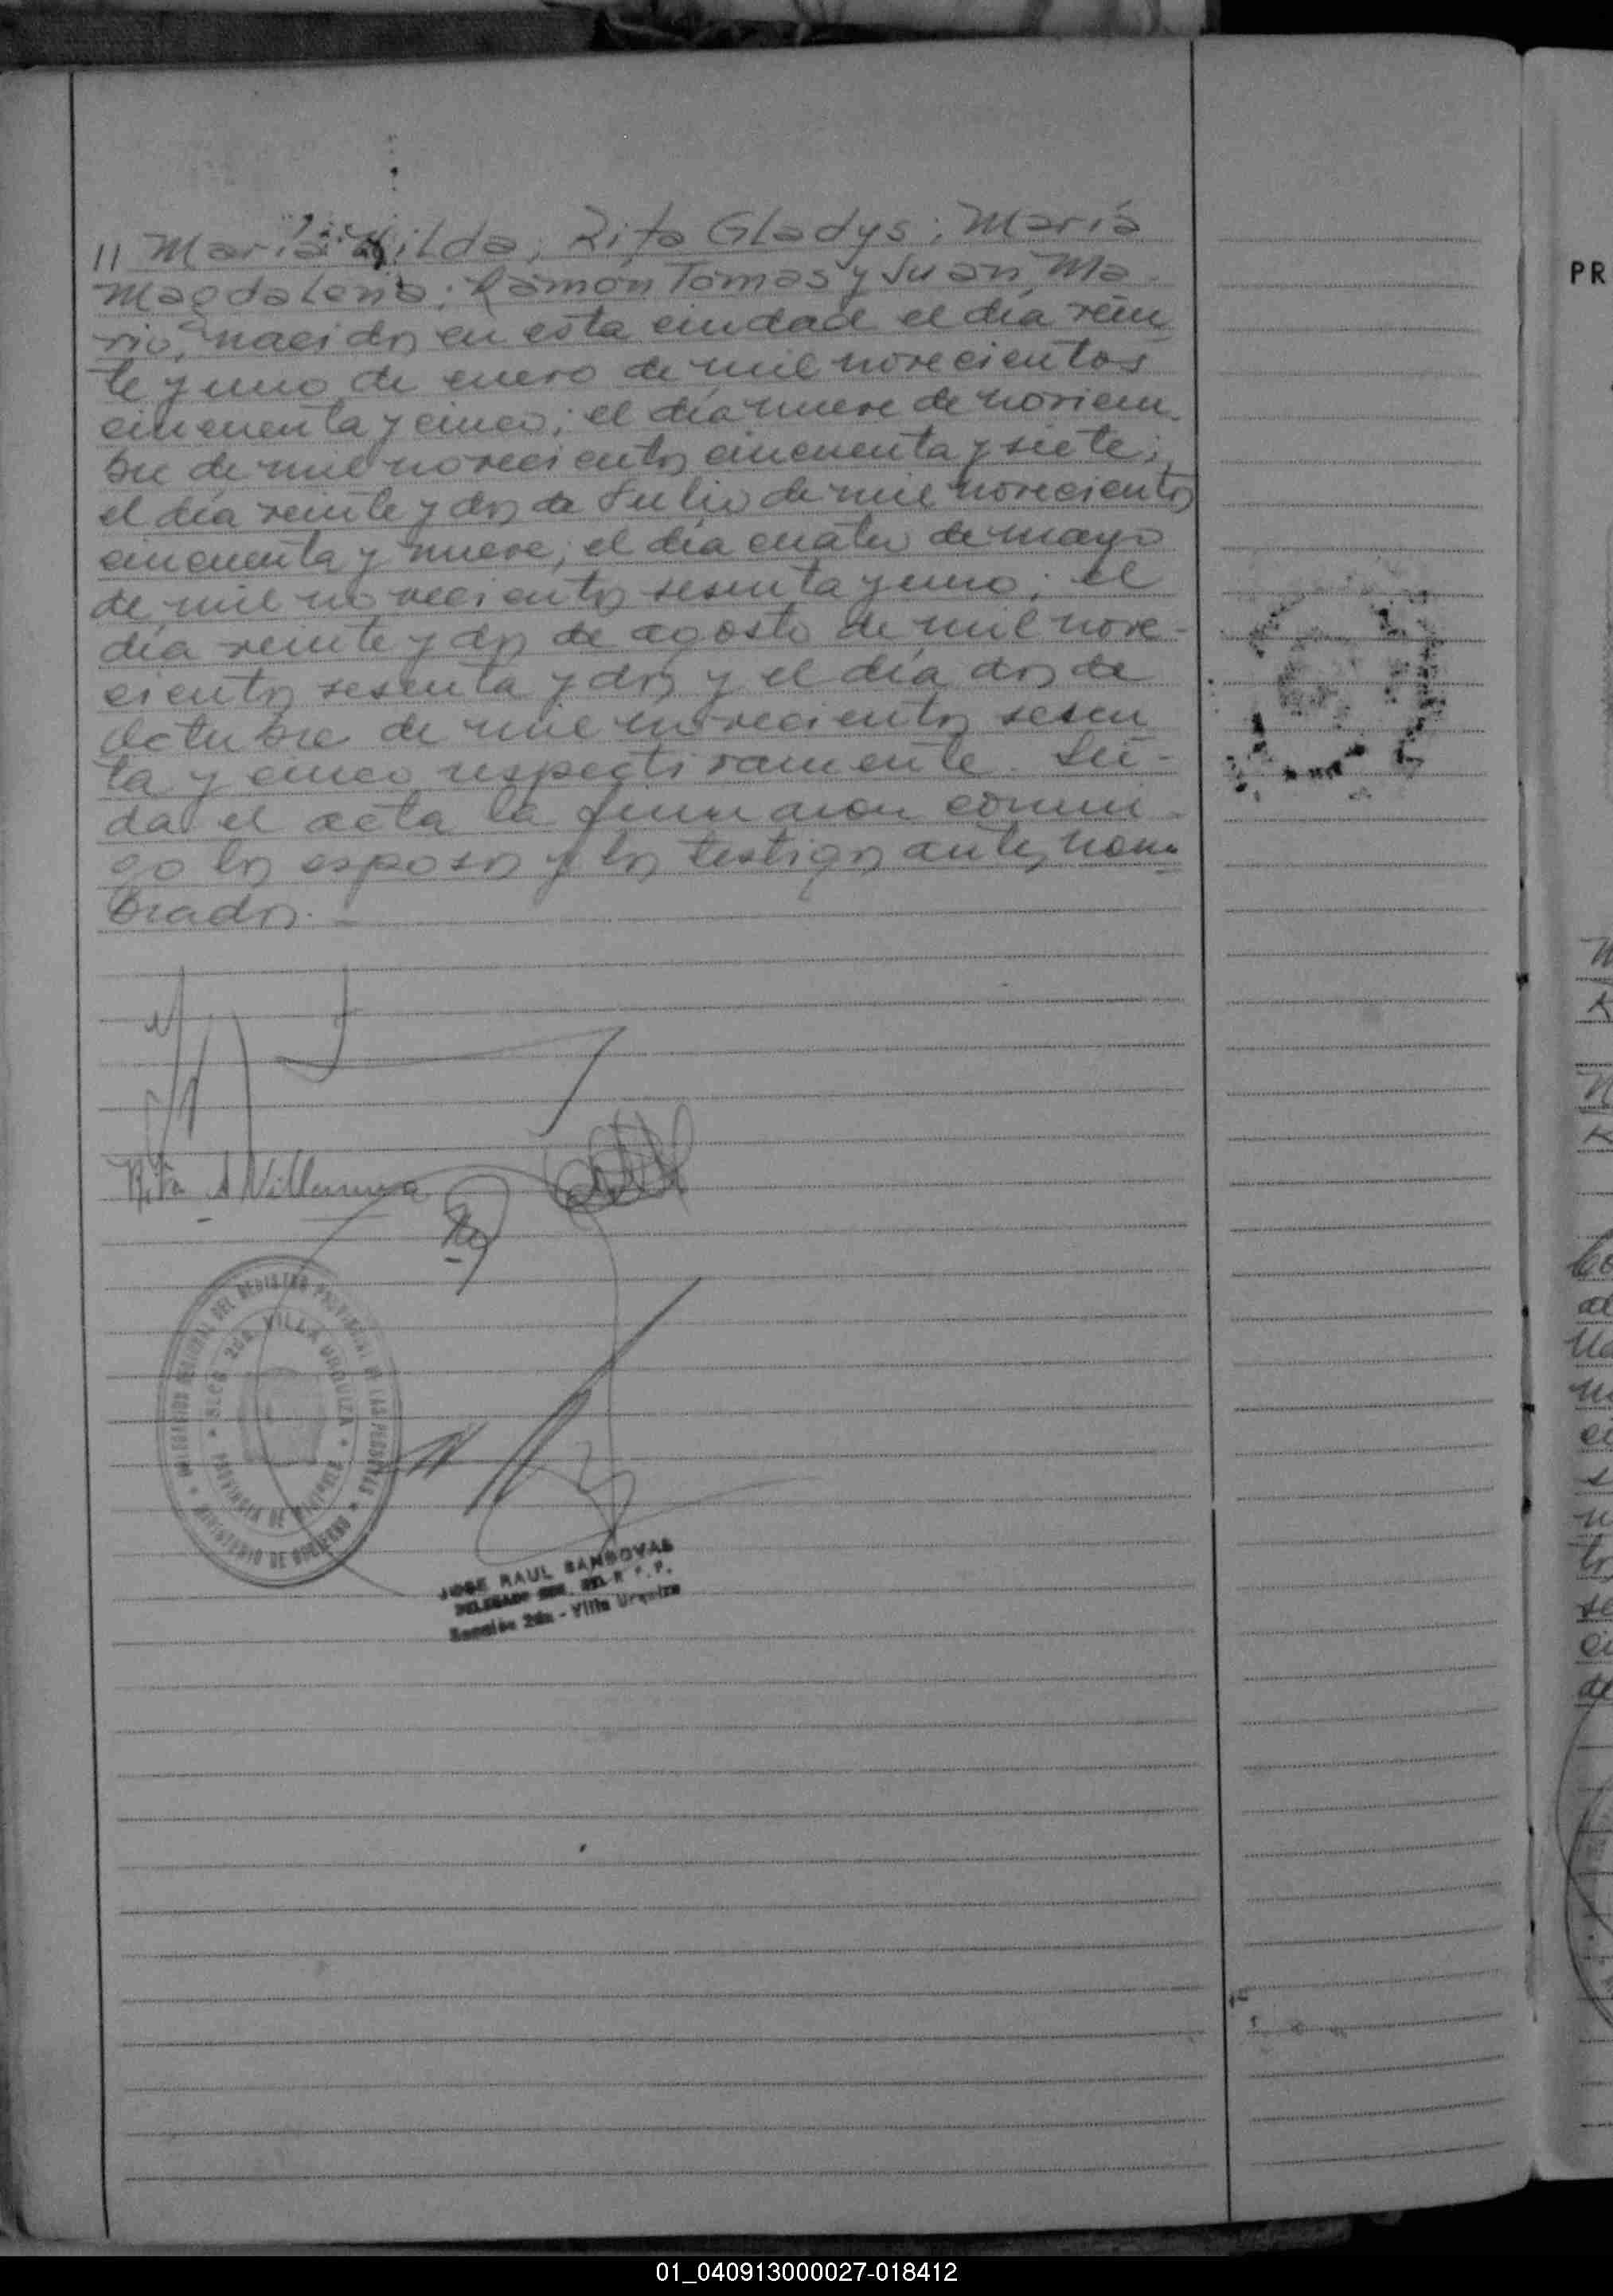 11 María Hilda; Rita Gladys; María
Magdalena; Ramón Tomas y Juan Ma-
rio, nacidos en esta ciudad el día vein
te y uno de enero de mil novecientos
cincuenta y cinco; el día nueve de noviem-
bre de mil novecientos cincuenta y siete;
el día veinte y dos de Julio de mil novecientos
cincuenta y nueve; el día cuatro de mayo
de mil novecientos sesenta y uno; el
día veinte y dos de agosto de mil nove-
cientos sesenta y dos y el día dos de
Octubre de mil novecientos sesen
ta y cinco respectivamente. Leí-
da el acta la firmaron conmi-
go los esposos y los testigos antes nom-
brados.-
Rita A Villanueva
DEL REGISTRO PROVINCIAL DE LAS PERSONAS
SECC. 2da. VILLA URQUIZA
PROVINCIA DE
MINISTERIO DE GOBIERNO
JOSE RAUL SANDOVAL
DELEGADO DEL R. P. P.
Sección 2da - Villa Urquiza
PR
01_040913000027-018412